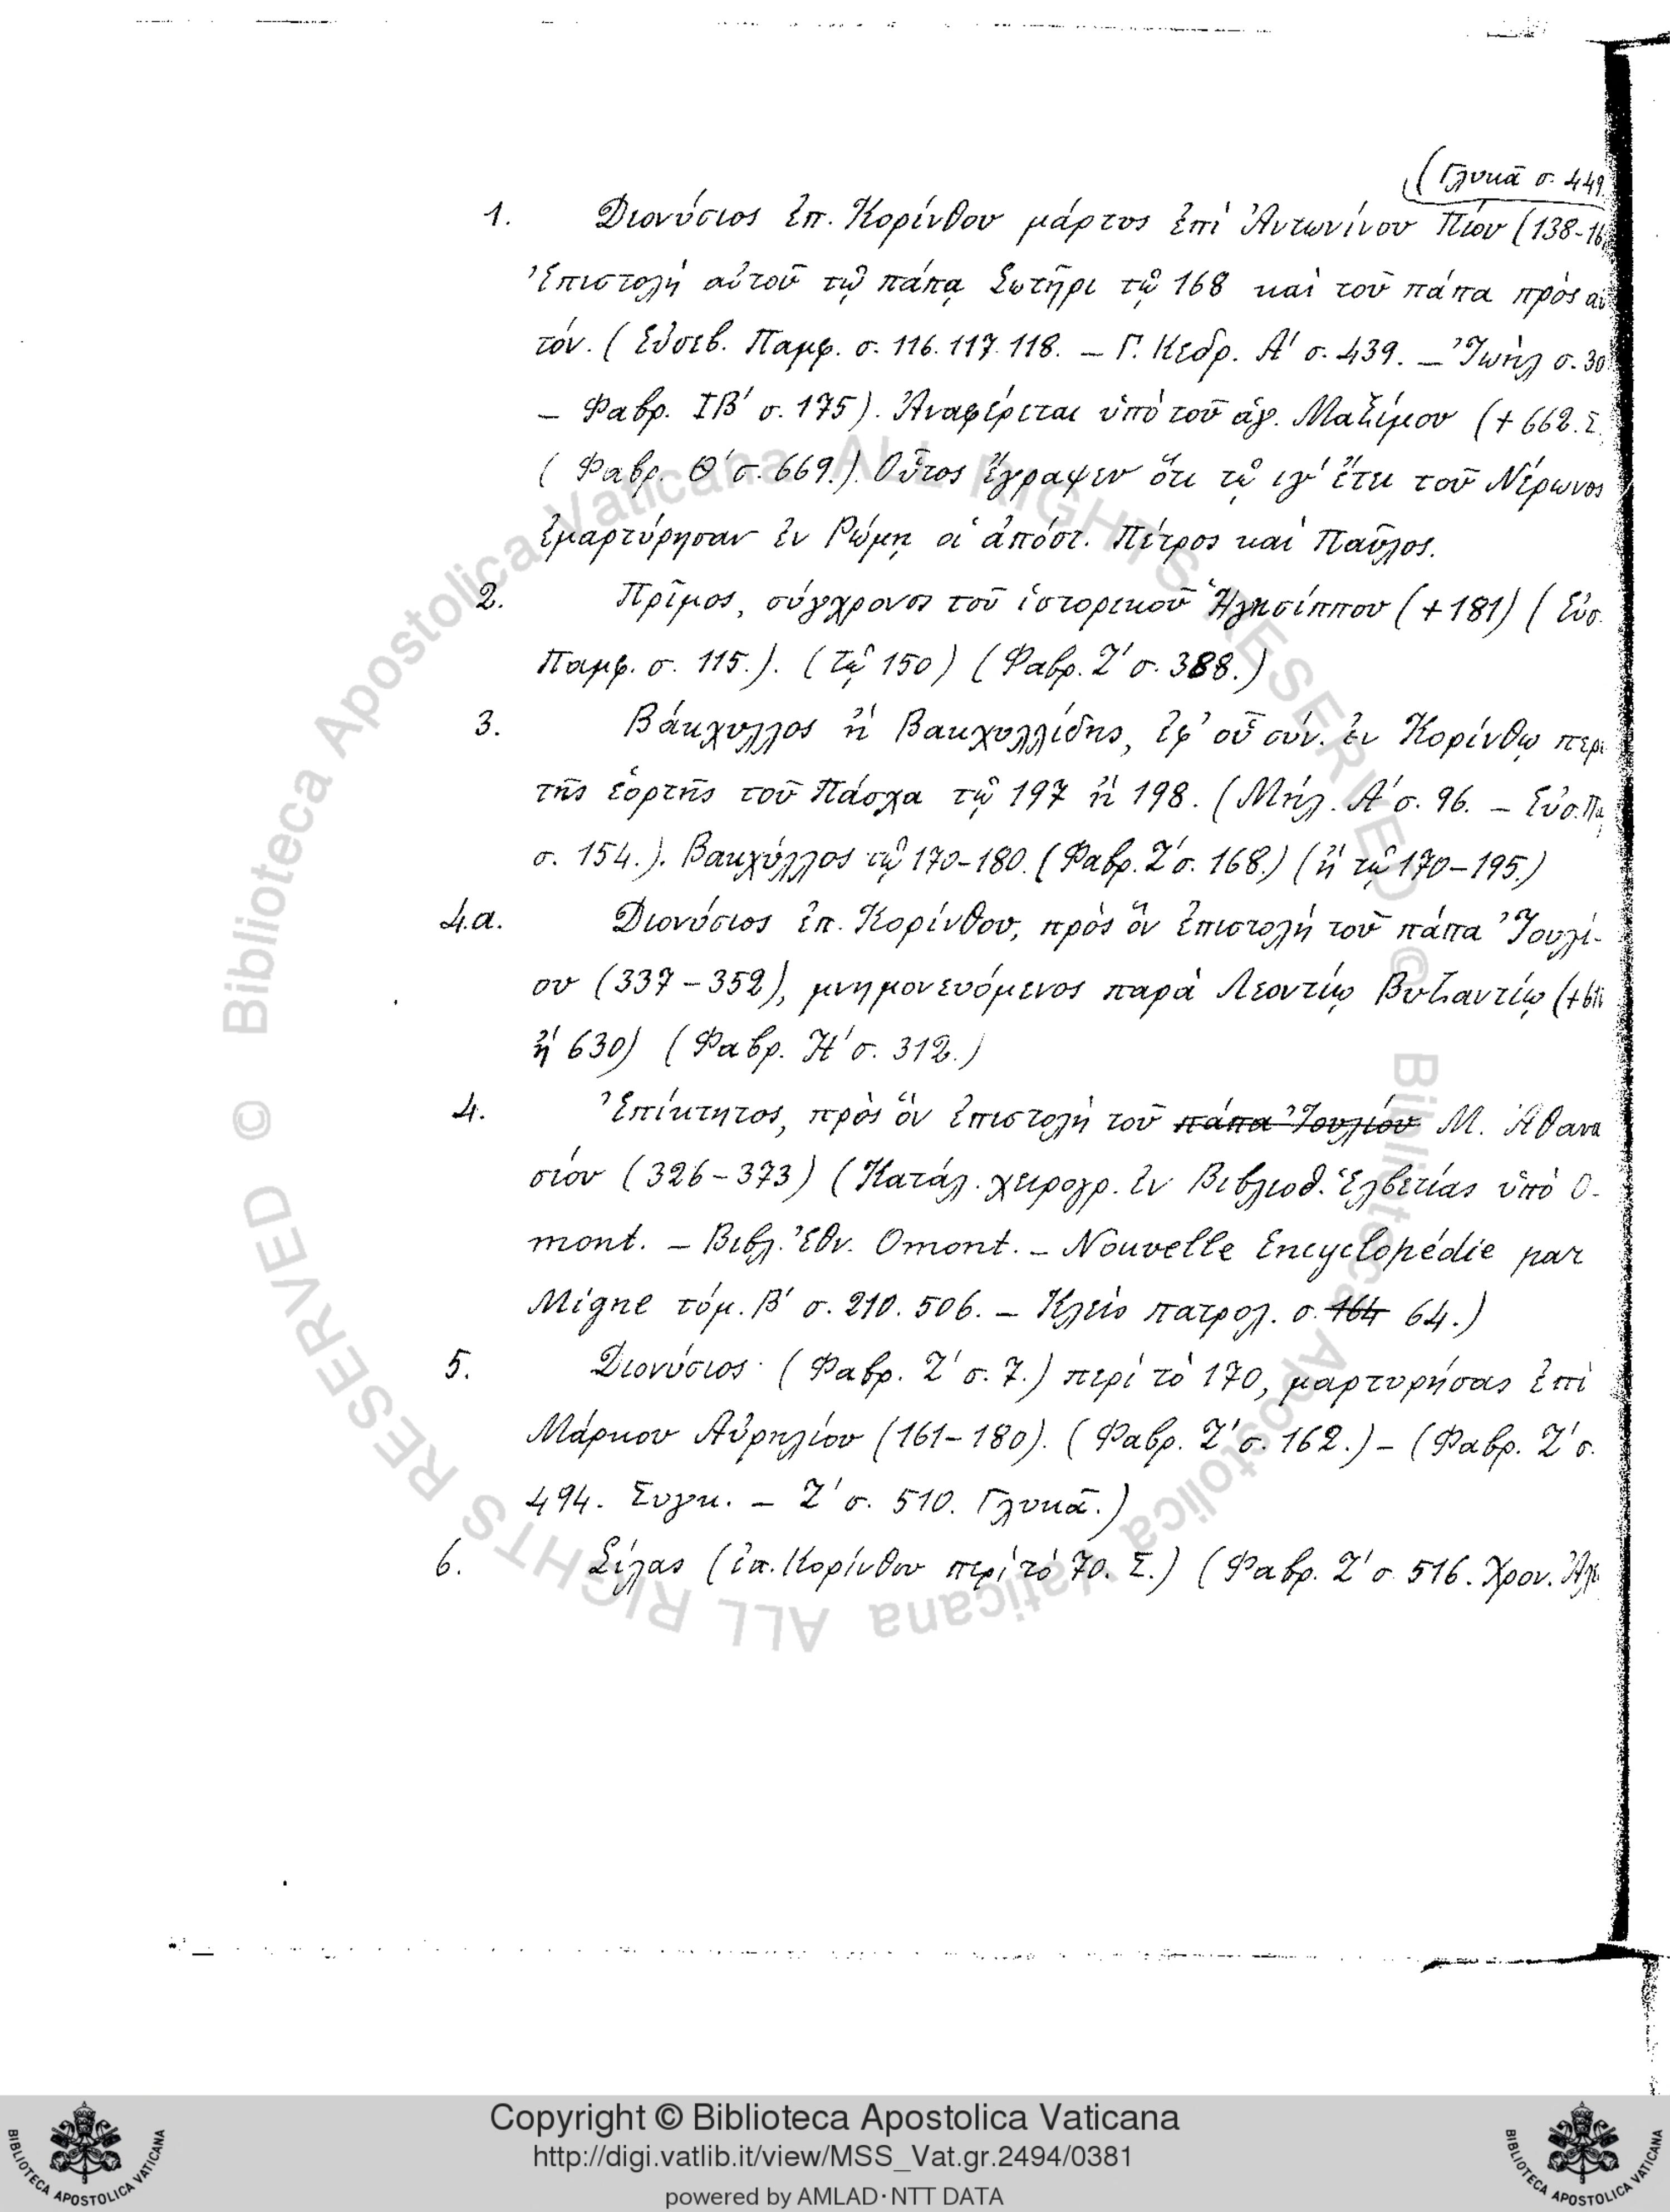 (Γλυκᾶ σ. 449.
1. Διονύσιος ἐπ. Κορίνθου μάρτυς ἐπὶ Ἀντωνίνου Πίου (138-16
Ἐπιστολὴ αὐτοῦ τῷ πάπᾳ Σωτῆρι τῷ 168 καὶ τοῦ πάπα πρὸς αὐ
τόν. (Εὐσεβ. Παμφ. σ. 116. 117. 118. – Γ. Κεδρ. Α' σ. 439. – Ἰωὴλ σ. 30
– Φαβρ. ΙΒ' σ. 175). Ἀναφέρεται ὑπὸ τοῦ ἁγ. Μαξίμου (+ 662. Σ.
(Φαβρ. Θ' σ. 669.). Οὗτος ἔγραψεν ὅτι τῷ ιγ' ἔτει τοῦ Νέρωνος
ἐμαρτύρησαν ἐν Ρώμῃ οἱ ἀπόστ. Πέτρος καὶ Παῦλος.
2. Πρῖμος, σύγχρονος τοῦ ἱστορικοῦ Ἡγησίππου (+181) (Εὐσ.
Παμφ. σ. 115.). (τῷ 150) (Φαβρ. Ζ' σ. 388.)
3. Βάκχυλλος ἢ Βακχυλλίδης, ἐφ' οὗ σύν. ἐν Κορίνθῳ περὶ
τῆς ἑορτῆς τοῦ Πάσχα τῷ 197 ἢ 198. (Μήλ. Α' σ. 96. – Εὐσ. Πα
σ. 154.). Βακχύλλος τῷ 170-180. (Φαβρ. Ζ' σ. 168.) (ἢ τῷ 170-195.)
4.α. Διονύσιος ἐπ. Κορίνθου, πρὸς ὃν ἐπιστολὴ τοῦ πάπα Ἰουλί-
ου (337-352), μνημονευόμενος παρὰ Λεοντίῳ Βυζαντίῳ (+61
ἢ 630) (Φαβρ. Η' σ. 312.)
4. Ἐπίκτητος, πρὸς ὃν ἐπιστολὴ τοῦ πάπα Ἰουλίου Μ. Ἀθανα
σίου (326-373) (Κατάλ. χειρογρ. ἐν Βιβλιοθ. Ἑλβετίας ὑπὸ O-
mont. – Βιβλ. Ἐθν. Omont. – Nouvelle Encyclopédie par
Migne τόμ. Β' σ. 210. 506. – Κλεὶς πατρολ. σ. 164 64.)
5. Διονύσιος (Φαβρ. Ζ' σ. 7.) περὶ τὸ 170, μαρτυρήσας ἐπὶ
Μάρκου Αὐρηλίου (161-180). (Φαβρ. Ζ' σ. 162.) – (Φαβρ. Ζ' σ.
494. Συγκ. – Ζ' σ. 510. Γλυκᾶ.)
6. Σίλας (ἐπ. Κορίνθου περὶ τὸ 70. Σ.) (Φαβρ. Ζ' σ. 516. Χρον. Ἀλε
© Biblioteca Apostolica Vaticana ALL RIGHTS RESERVED © Biblioteca Apostolica Vaticana ALL RIGHTS RESERVED
Copyright © Biblioteca Apostolica Vaticana
http://digi.vatlib.it/view/MSS_Vat.gr.2494/0381
powered by AMLAD·NTT DATA
BIBLIOTECA APOSTOLICA VATICANA
BIBLIOTECA APOSTOLICA VATICANA